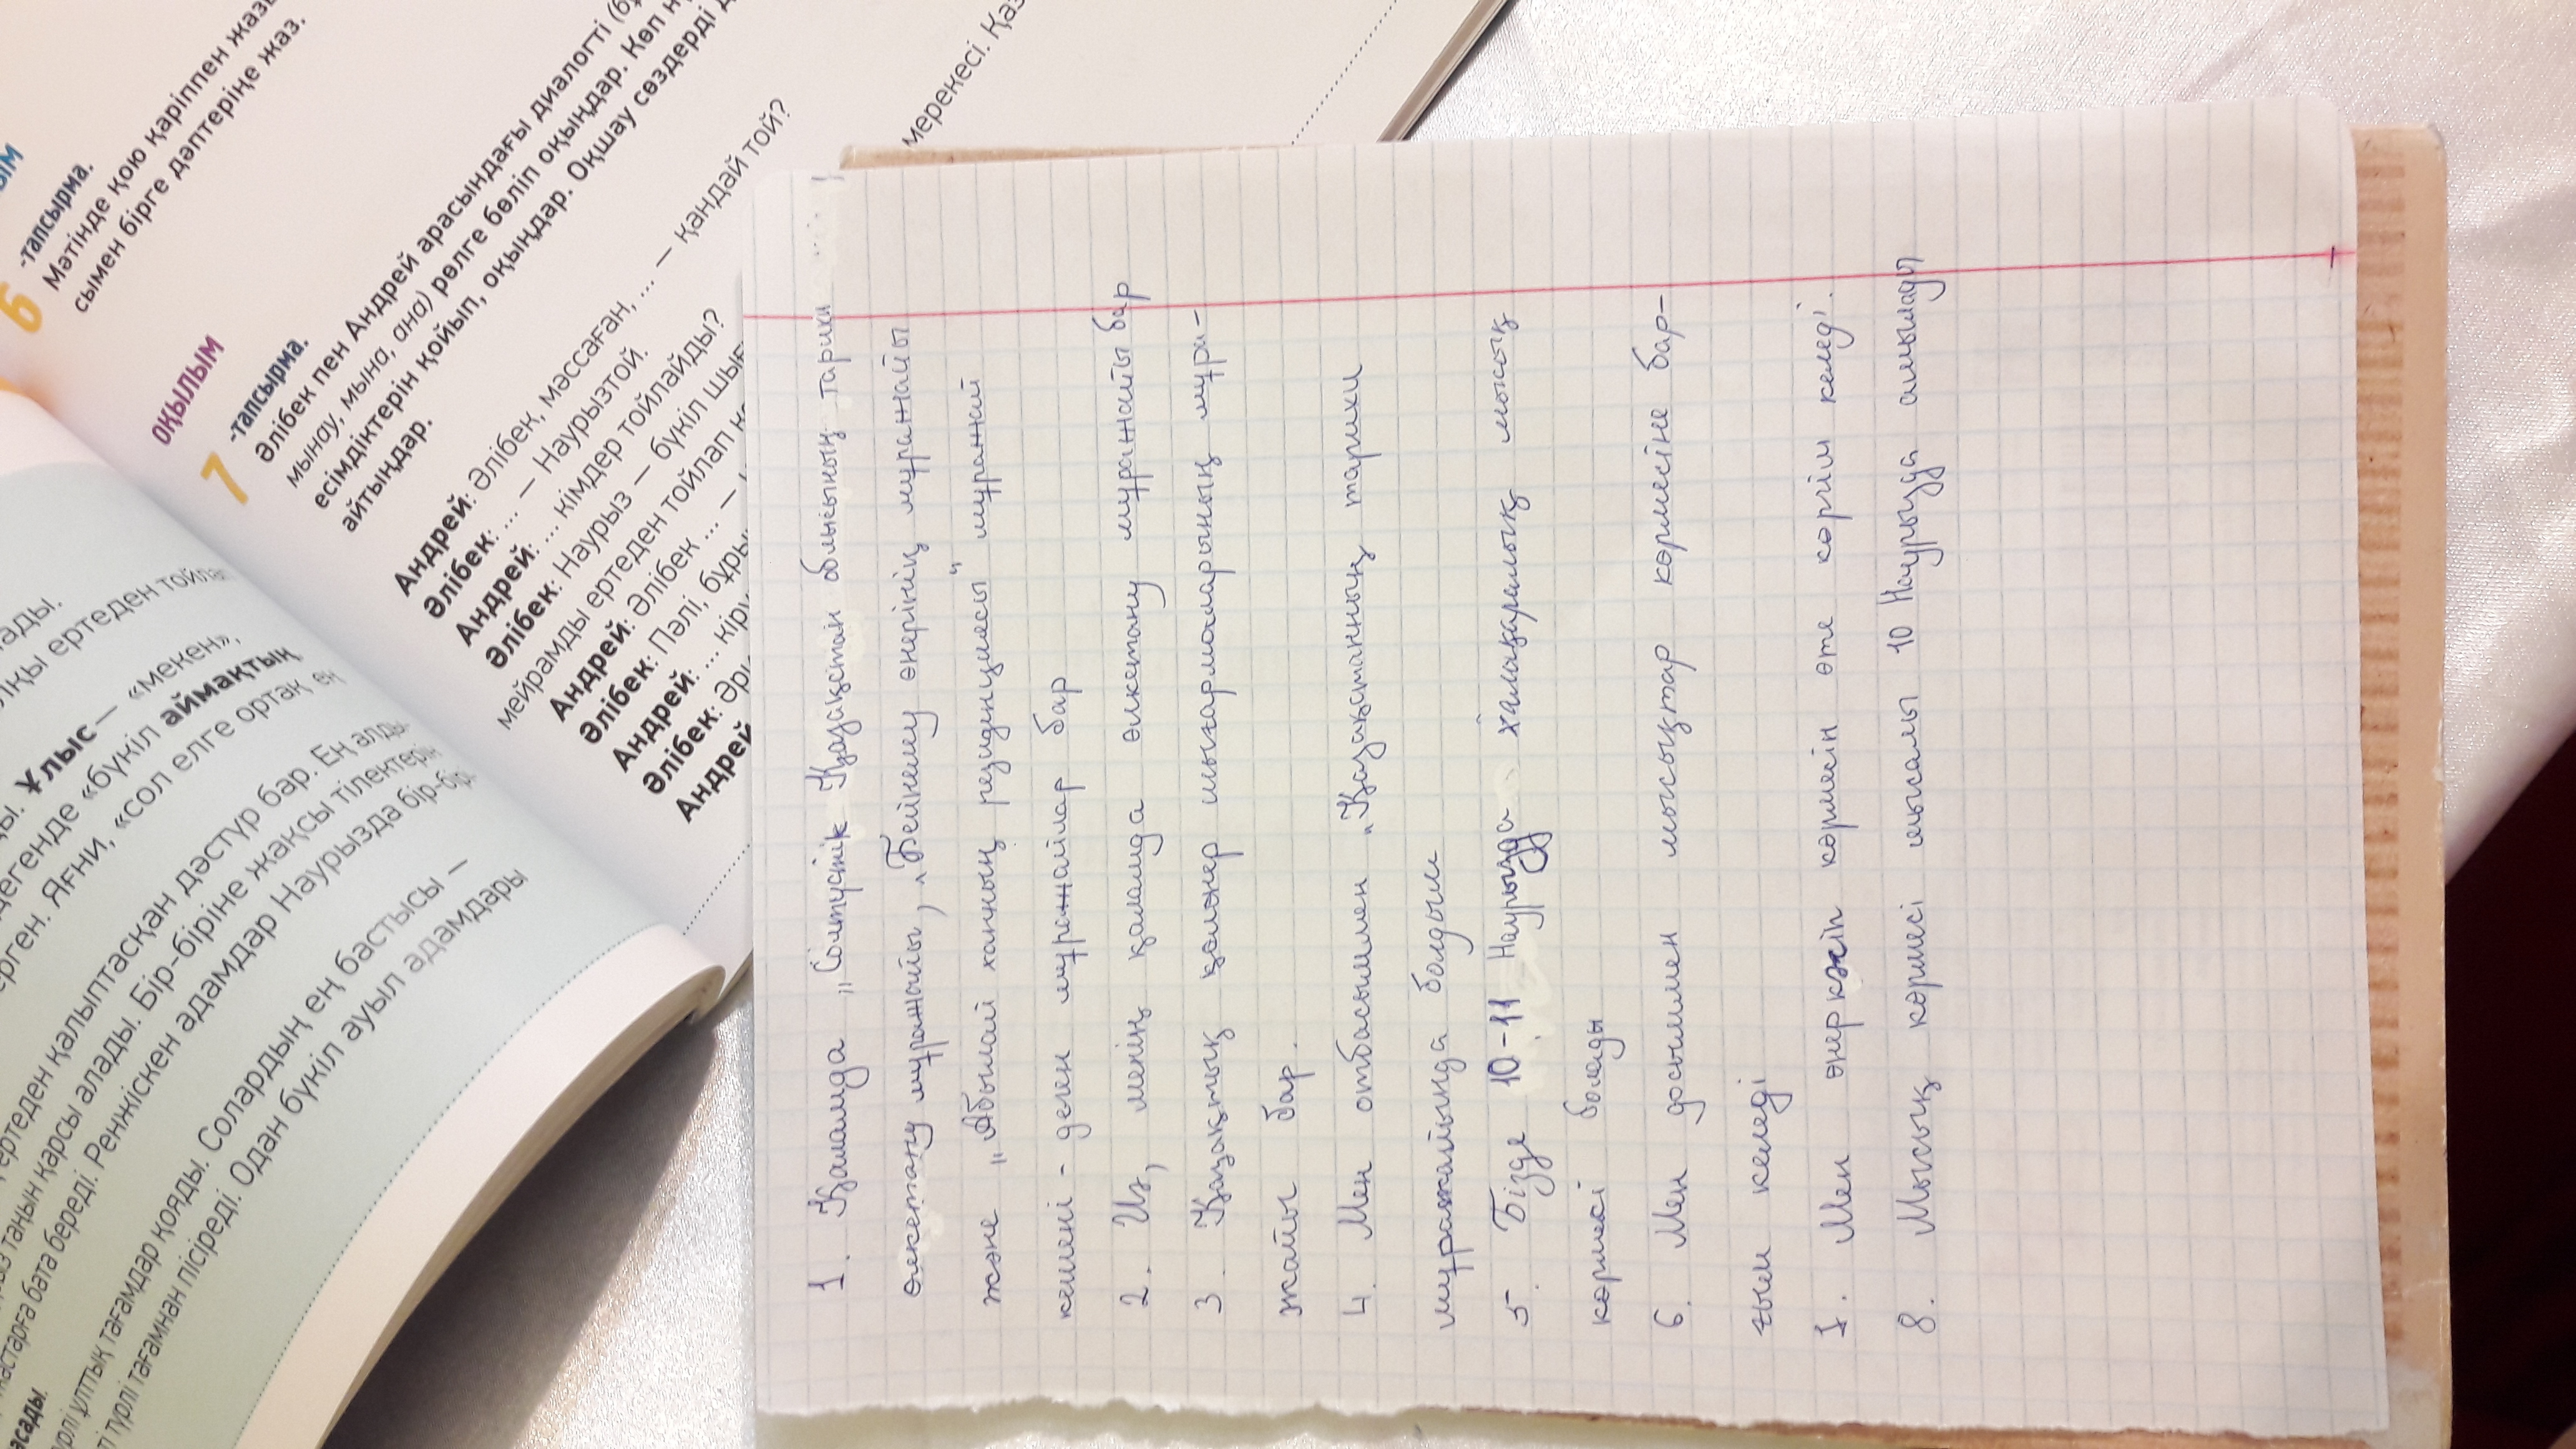 -тапсырма.
6 Мәтінде қою қаріппен
сымен бірге дәптеріңе жаз.
ОҚЫЛЫМ
7 -тапсырма.
Әлібек пен Андрей арасындағы диалогті
мынау, мына, ана) рөлге бөліп оқыңдар. Көп
есімдіктерін қойып, оқыңдар. Оқшау сөздерді
айтыңдар.
Андрей: Әлібек, мәссаған, ... — қандай той?
Әлібек: ... — Наурызтой.
Андрей: ... кімдер тойлайды?
Әлібек: Наурыз — бүкіл
мейрамды ертеден тойлап
Андрей: Әлібек ... —
Әлібек: Пәлі,
Андрей: ...
Әлібек:
Андрей
мерекесі.
ертеден
Ұлыс — «мекен»,
дегенде «бүкіл аймақтық
Яғни, «сол елге ортақ ең
ертеден қалыптасқан дәстүр бар. Ең
таңын қарсы алады. Бір-біріне жақсы тілектерін
бата береді. Ренжіскен адамдар Наурызда
ұлттық тағамдар қояды. Солардың ең бастысы —
түрлі тағамнан пісіреді. Одан бүкіл ауыл адамдары
1. Қаламда „Солтүстік Қазақстан облысының тарихи
өлкетану мұражайы, „Бейнелеу өнерінің мұражайы
және „Абылай ханның резиденциясы" мұражай
кешені - деген мұражайлар бар
2. Иә, менің қаламда өлкетану мұражайы бар
3. Қазақтың қолөнер шығармаларының мұра-
жайы бар.
4. Мен отбасыммен „Қазақстанның тарихи
мұражайында болдым
5. Бізде 10-11 Наурызда халықаралық мысық
көрмесі болады
6. Мен досыммен мысықтар көрмесіне бар-
ғым келеді
7. Мен өнеркәсіп көрмейін өте көргім келеді.
8. Мысық көрмесі мысалы 10 Наурызда ашылады